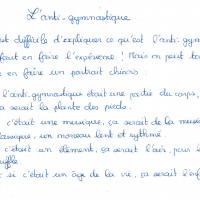 L'anti-gymnastique
est difficile d'expliquer ce qu'est l'anti-gym
faut en faire l'expérience ! Mais on peut to
e en faire un portrait chinois :
l'anti-gymnastique était une partie du corps,
a serait la plante des pieds.
c'était une musique, ça serait de la musi
lassique, un morceau lent et rythmé.
c'était un élément, ça serait l'air, pour l
ouffle
si c'était un âge de la vie, ça serait l'enf